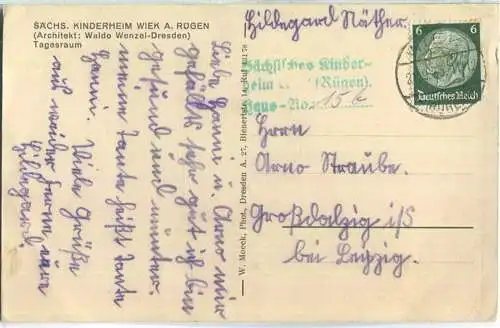 SÄCHS. KINDERHEIM WIEK A. RÜGEN
(Architekt: Waldo Wenzel-Dresden)
Tagesraum
Liebe Hanni u. Arno mir
gefällts sehr gut ich bin
gesund und munter.
meine Tante heißt Tante
Hanni. Viele Grüße
aus weiter Ferne eure
Hildegard.
W. Moeck, Phot, Dresden A. 27, Bienertstr. 14, Ruf
Hildegard Näther.
Sächsisches Kinder-
heim (Rügen).
Haus-No. 15 b
6 6
Deutsches Reich
Herrn
Arno Straube.
Großdalzig
bei Leipzig.